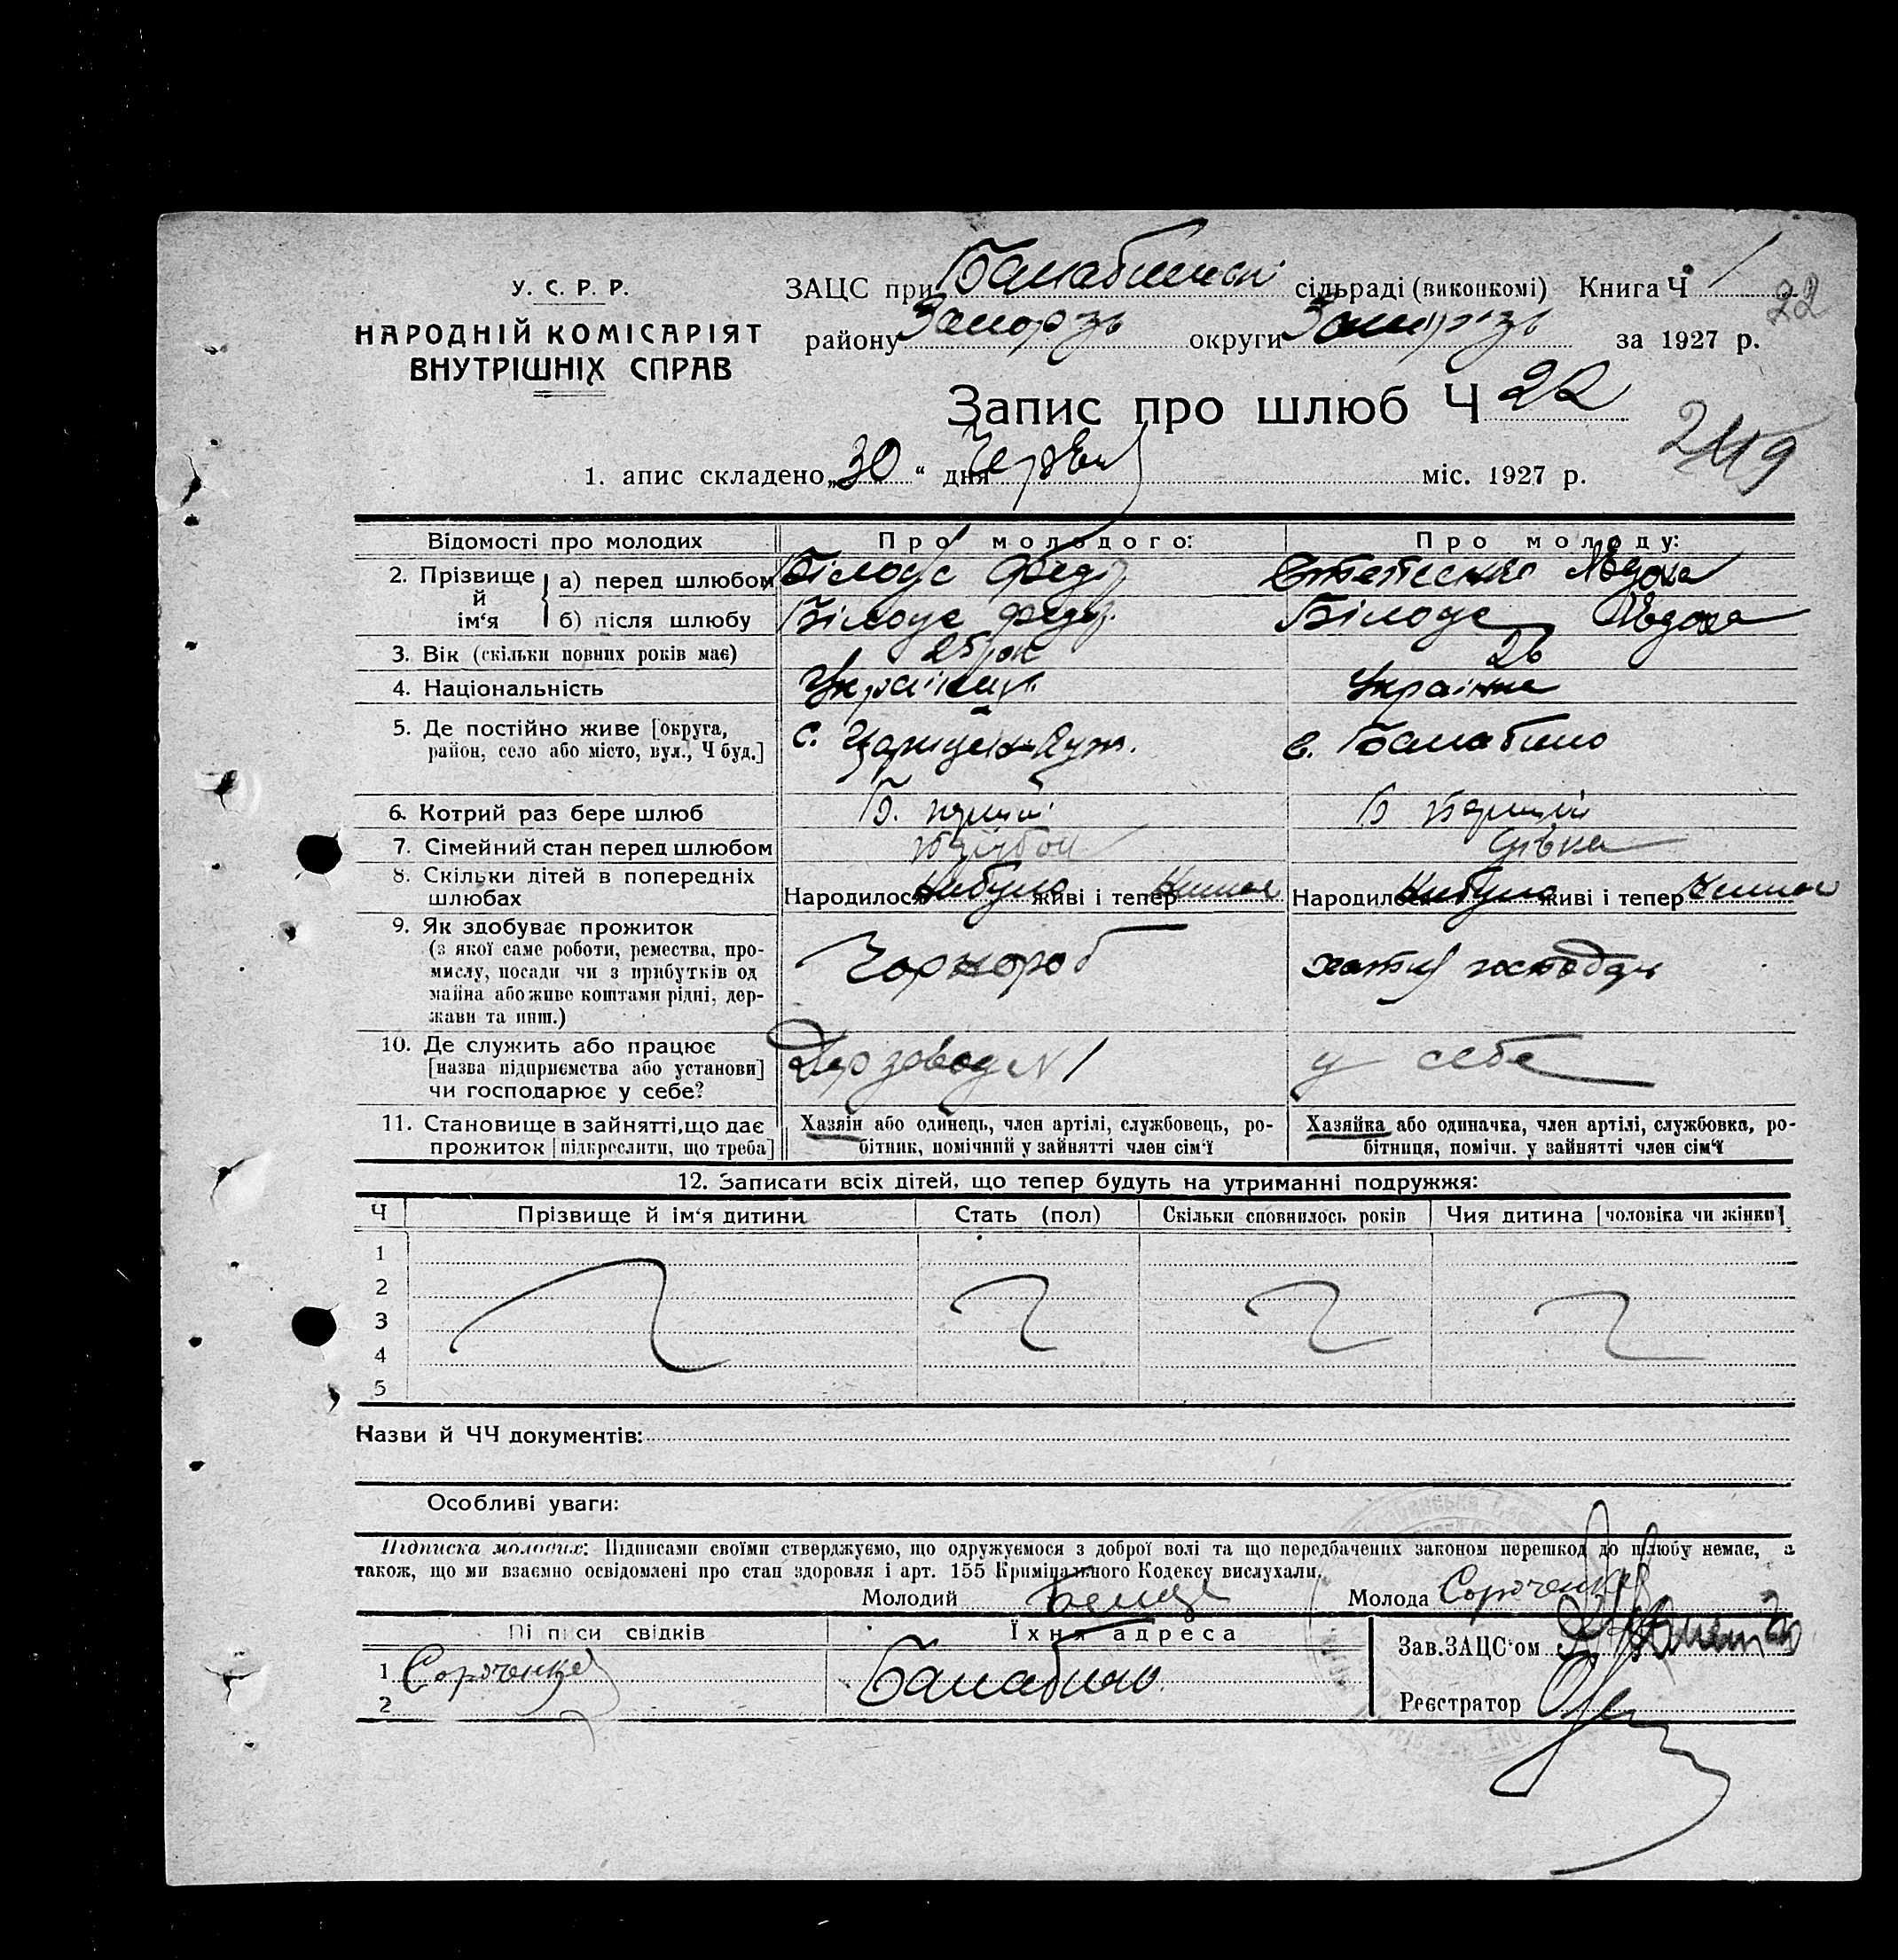 У. С. Р. Р.
НАРОДНІЙ КОМІСАРІЯТ
ВНУТРІШНІХ СПРАВ
ЗАЦС при сільраді (виконкомі) Книга Ч 1
22
району округи за 1927 р.
Запис про шлюб Ч 22
1. апис складено „30“ дня міс. 1927 р.
Відомості про молодих Про молодого: Про молоду:
2. Прізвище й ім‘я а) перед шлюбом Білоус Федір Авдоха
б) після шлюбу Білоус Федір. Білоус Авдоха
3. Вік (скільки повних років має) 25 рок 26
4. Національність Українець Українка
5. Де постійно живе [округа, с. с. Балабино
район, село або місто, вул., Ч буд.]
6. Котрий раз бере шлюб В. перший В перший
7. Сімейний стан перед шлюбом дівка
8. Скільки дітей в попередніх
шлюбах Народилося Небуло живі і тепер Немає Народилося Небуло живі і тепер Немає
9. Як здобуває прожиток
(з якої саме роботи, ремества, про-
мислу, посади чи з прибутків од Чорнороб
майна або живе коштами рідні, дер-
жави та инш.)
10. Де служить або працює
[назва підприємства або установи] Держзавод №1 у себе
чи господарює у себе?
11. Становище в зайнятті, що дає Хазяїн або одинець, член артілі, службовець, ро- Хазяйка або одиначка, член артілі, службовка, ро-
прожиток [підкреслити, що треба] бітник, помічний у зайнятті член сім‘ї бітниця, помічн. у зайнятті член сім‘ї
12. Записати всіх дітей, що тепер будуть на утриманні подружжя:
Ч Прізвище й ім‘я дитини Стать (пол) Скільки сповнилось років Чия дитина [чоловіка чи жінки]
1
2
3
4
5
Назви й ЧЧ документів:
Особливі уваги:
Підписка молодих: Підписами своїми стверджуємо, що одружуємося з доброї волі та що передбачених законом перешкод до шлюбу немає, а
також, що ми взаємно освідомлені про стан здоровля і арт. 155 Криміцального Кодексу вислухали.
Молодий Молода Сороченко
Пі писи свідків Їхня адреса Зав.ЗАЦС‘ом
1 Сороченко Балабино
2 Реєстратор